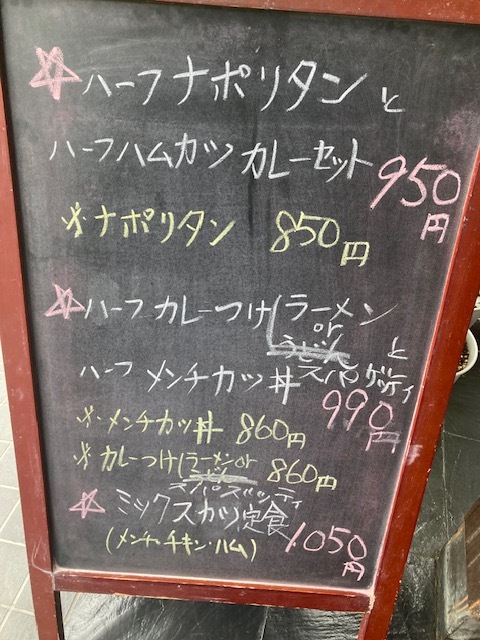 ☆ハーフナポリタンと
ハーフハムカツカレーセット 950円
※ナポリタン 850円
☆ハーフカレーつけ(ラーメン
or
うどん と
スパゲッティ
ハーフメンチカツ丼 990円
※メンチカツ丼 860円
※カレーつけ(ラーメンor 860円
うどん
スパゲッティ
☆ミックスカツ定食 1.050円
(メンチ・チキン・ハム)